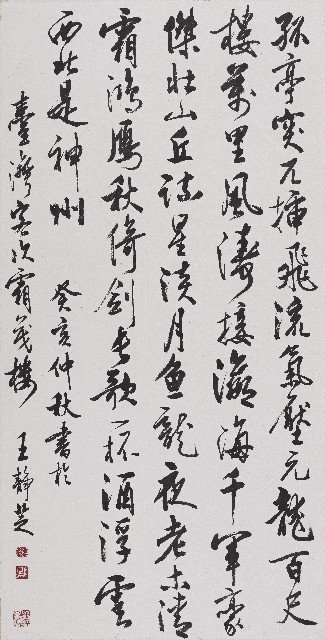 孤亭突兀插飛流氣壓元龍百尺
樓萬里風濤接瀛海千年豪
傑壯山丘疎星淡月魚龍夜老木清
霜鴻鴈秋倚劍長歌一杯酒浮雲
西北是神州 癸亥仲秋書於
臺灣客次霜茂樓 王靜芝